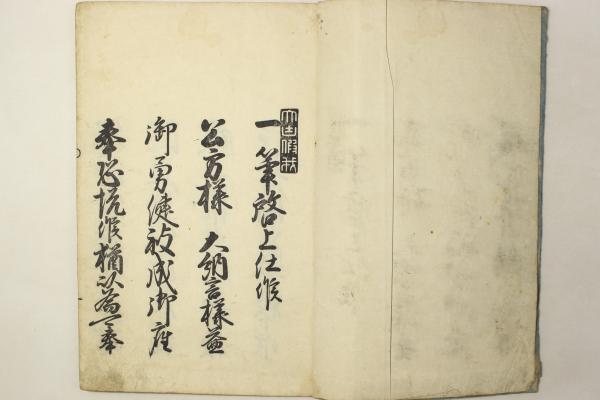 一筆啓上仕候
公方様 大納言様益
御勇健被成御座
奉恐悦候猶以為可奉